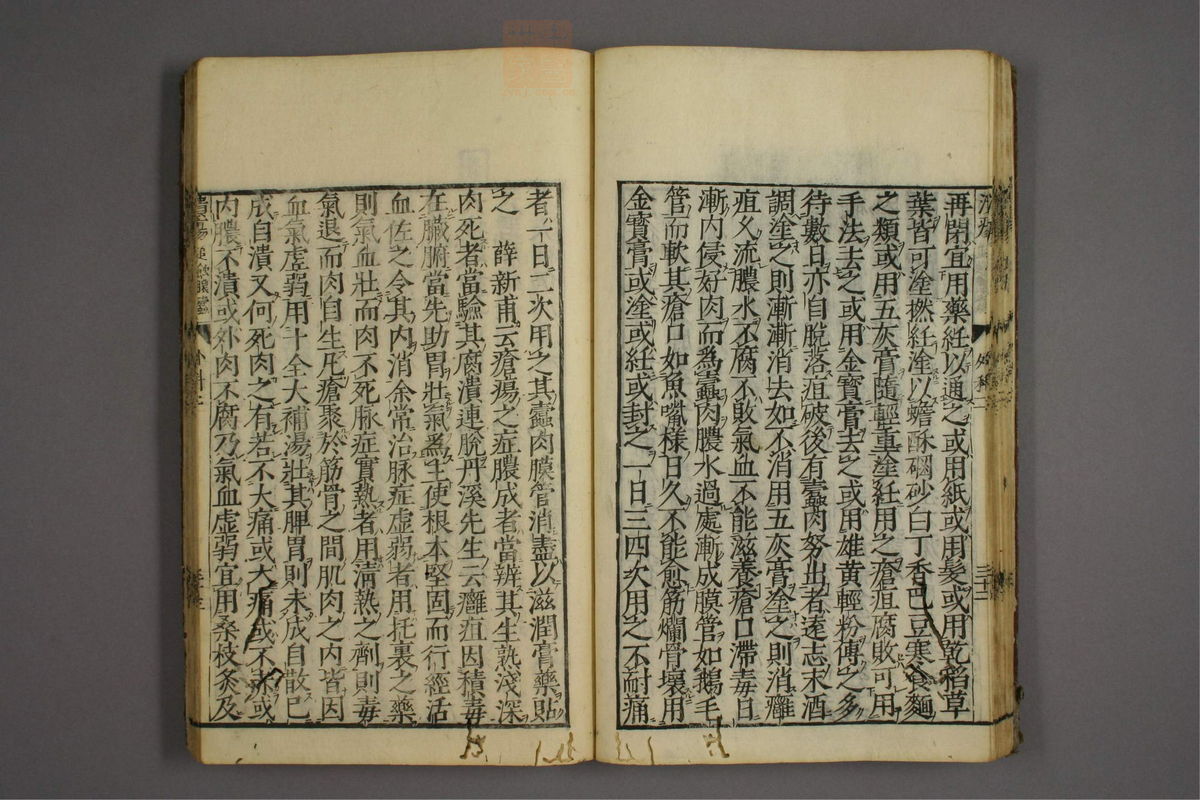 再閉宜用藥紝以通之或用紙或用髮或用乾稻草
葉皆可塗撚紝塗以蟾酥硇砂白丁香巴豆寒食麵
之類或用五灰膏隨輕重塗紝用之瘡疽腐敗可用
手法去之或用金寳膏去之或用雄黃輕粉傅之多
待數日亦自脫落疽破後有蠹肉努出者遠志末酒
調塗之則漸漸消去如不消用五灰膏塗之則消癰
疽久流膿水不腐不敗氣血不能滋養瘡口滯毒日
漸内侵好肉而為蠹肉膿水過處漸成膜管如鵝毛
管而軟其瘡口如魚嘴樣日久不能愈筋爛骨壞用
金寳膏或塗或紝或封之一日三四次用之不耐痛
者一日二次用之其蠹肉膜管消盡以滋潤膏藥貼
之 薛新甫云瘡瘍之症膿成者當辨其生熟淺深
肉死者當驗其腐潰連脫丹溪先生云癰疽因積毒
在臟腑當先助胃壯氣為主使根本堅固而行經活
血佐之令其内消余常治脉症虛弱者用托裏之藥
則氣血壯而肉不死脉症實熱者用清熱之劑則毒
氣退而肉自生凡瘡聚於筋骨之間肌肉之内皆因
血氣虛弱用十全大補湯壯其脾胃則未成自散已
成自潰又何死肉之有若不大痛或大痛或不赤或
内膿不潰或外肉不腐乃氣血虛弱宜用桑枝灸及
外科二